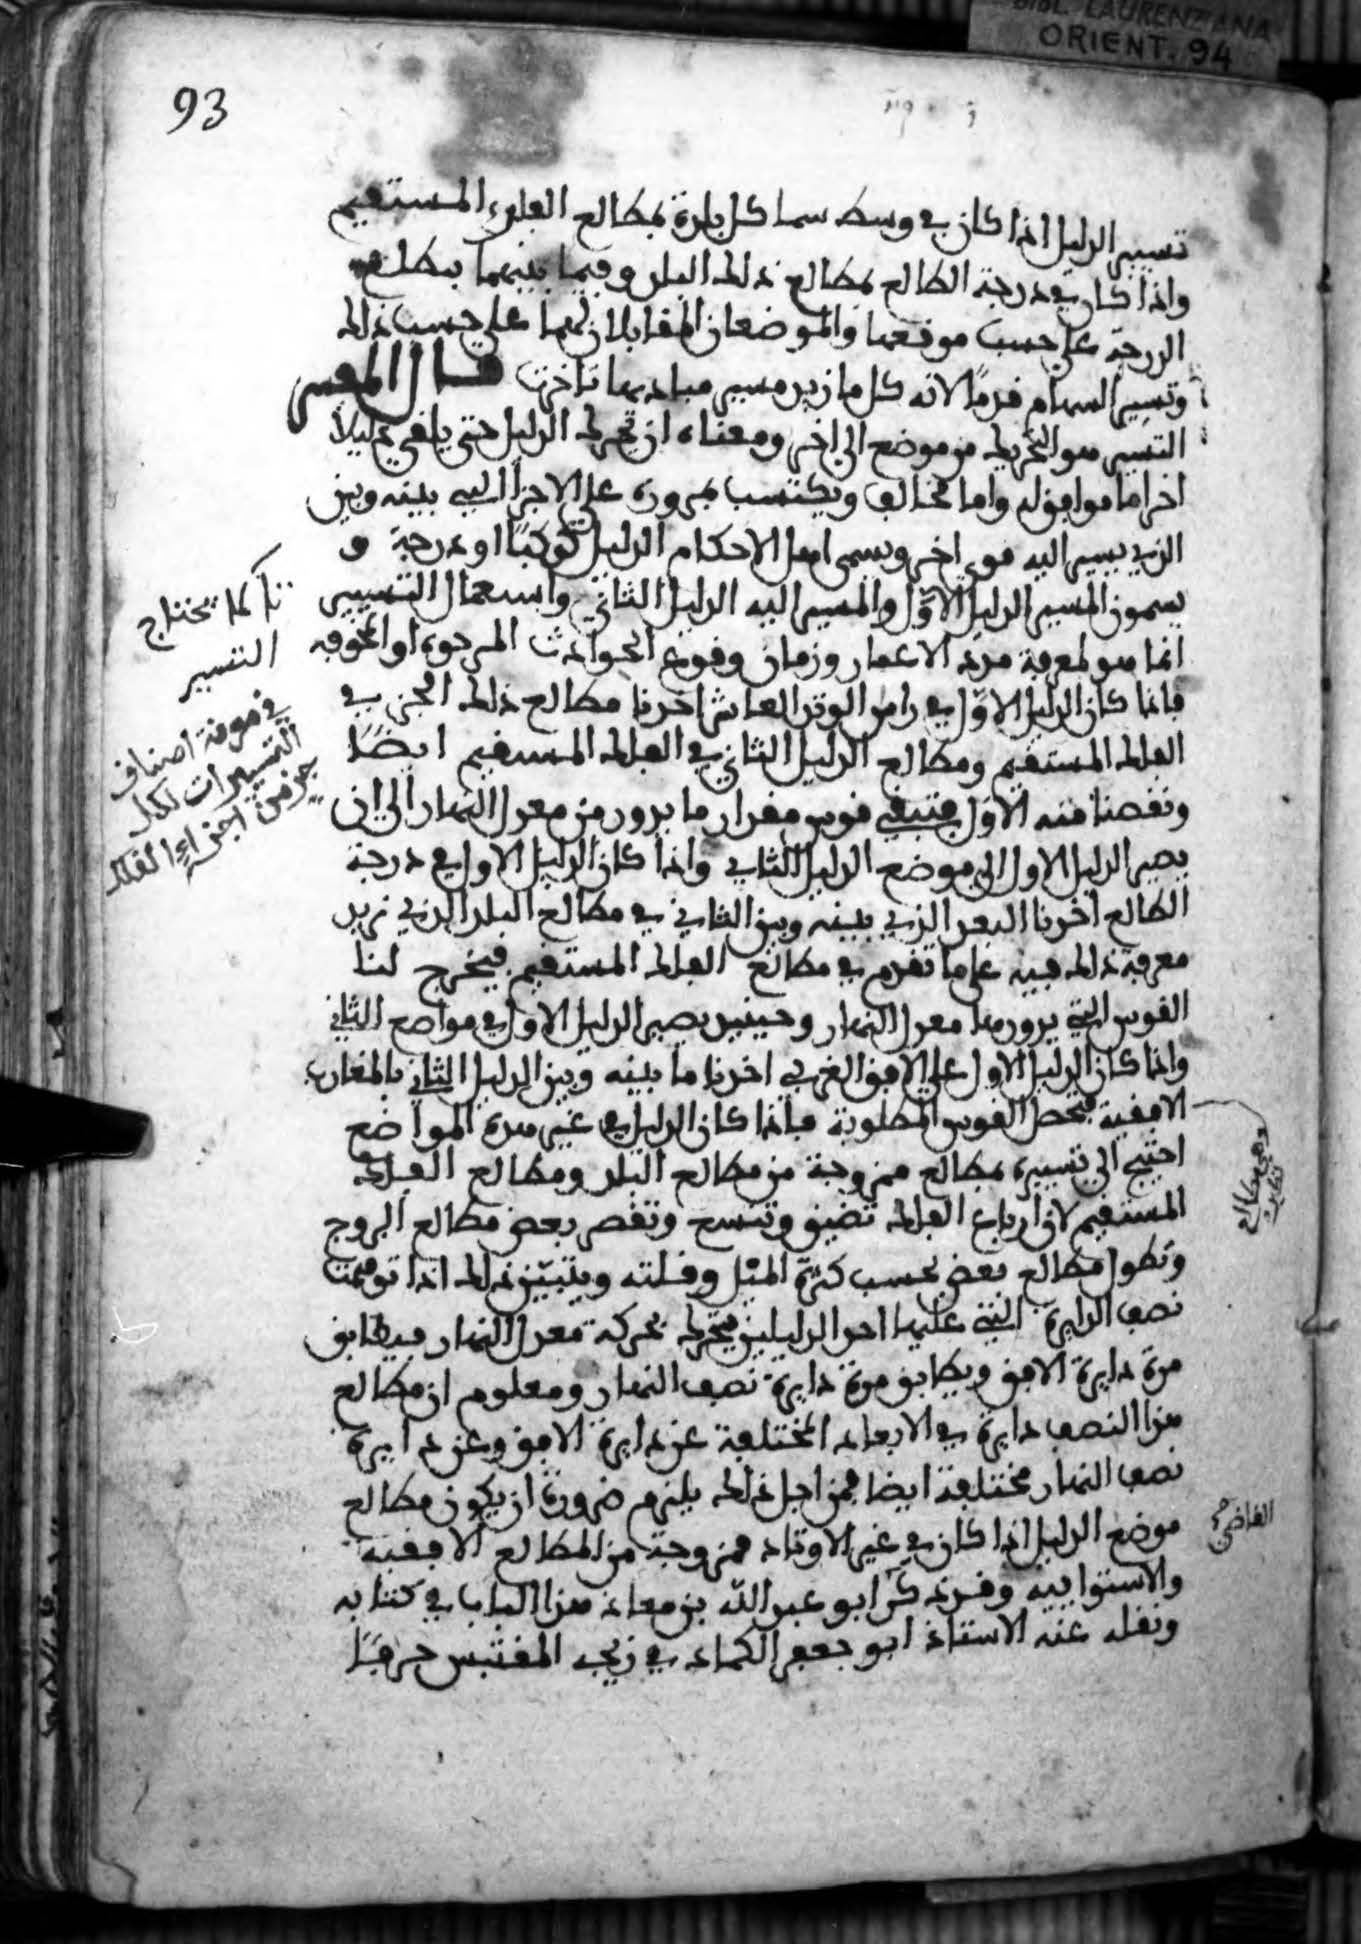 BIBL. LAURENZIANA
ORIENT. 94
93
تسيير الدليل اذا كان في وسط سما كل بلدة بمطالع الفلك المستقيم
واذا كان في درجة الطالع بمطالع ذلك البلد وفيما بينهما بمطالع
الدرجة على حسب موقعها والموضعان المقابلان لهما على حسب ذلك
وتسير السهام قدما لانه كل ما زيد مسير مباديها تاخرت قال المفسر
التسيير هو التحريك من موضع الى اخر ومعناه ان تحرك الدليل حتى يلقي دليلا
اخر اما موافق له واما مخالف ويكتسب بمروره على الاجزا التي بينه وبين
الذي يسير اليه قوى اخر ويسمي اهل الاحكام الدليل كوكبا او درجة و
يسمون المسير الدليل الاول والمسير اليه الدليل الثاني واستعمال التسيير
انما هو لمعرفة مدد الاعمار وزمان وقوع الحوادث المرجوة او المخوفة
فاذا كان الدليل الاول في راس الوتد العاشر اخذنا مطالع ذلك الجزء في
الفلك المستقيم ومطالع الدليل الثاني في الفلك المستقيم ايضا
ونقصنا منه الاول فتبقى قوس مقدار ما يدور من معدل النهار الى ان
يصير الدليل الاول الى موضع الدليل الثاني واذا كان الدليل الاول في درجة
الطالع اخذنا البعد الذي بينه وبين الثاني في مطالع البلد الذي نريد
معرفة ذلك فيه على ما تقدم في مطالع الفلك المستقيم فيخرج لنا
القوس التي يدورها معدل النهار وحينئذ يصير الدليل الاول في مواضع الثاني
واذا كان الدليل الاول على الافق الغربي اخذنا ما بينه وبين الدليل الثاني بالمغارب
الافقية فيحصل القوس المطلوبة فاذا كان الدليل في غير هذه المواضع
احتيج الى تسييره بمطالع ممزوجة من مطالع البلد ومطالع الفلك
المستقيم لان ارباع الفلك تضيق وتتسع وتقصر بعض مطالع البروج
وتطول مطالع بعض بحسب كثرة الميل وقلته ويتبين ذلك اذا توهمت
نصف الدايرة التي عليها احد الدليلين يتحرك بحركة معدل النهار فيطابق
مرة دايرة الافق ويطابق مرة دايرة نصف النهار ومعلوم ان مطالع
هذا النصف دايرة في الابعاد المختلفة عن دايرة الافق وعن دايرة
نصف النهار مختلفة ايضا فمن اجل ذلك يلزم ضرورة ان يكون مطالع
موضع الدليل اذا كان في غير الاوتاد ممزوجة من المطالع الافقية
والاستوايية وقد ذكر ابو عبد الله بن معاذ هذا الباب في كتابه
ونقله عنه الاستاذ ابو جعفر الكماد في زيجه المقتبس حرفا
التسيير
في معرفة اصناف
التسييرات لكل
جزء من اجزاء الفلك
وهي مطالع
القاضي